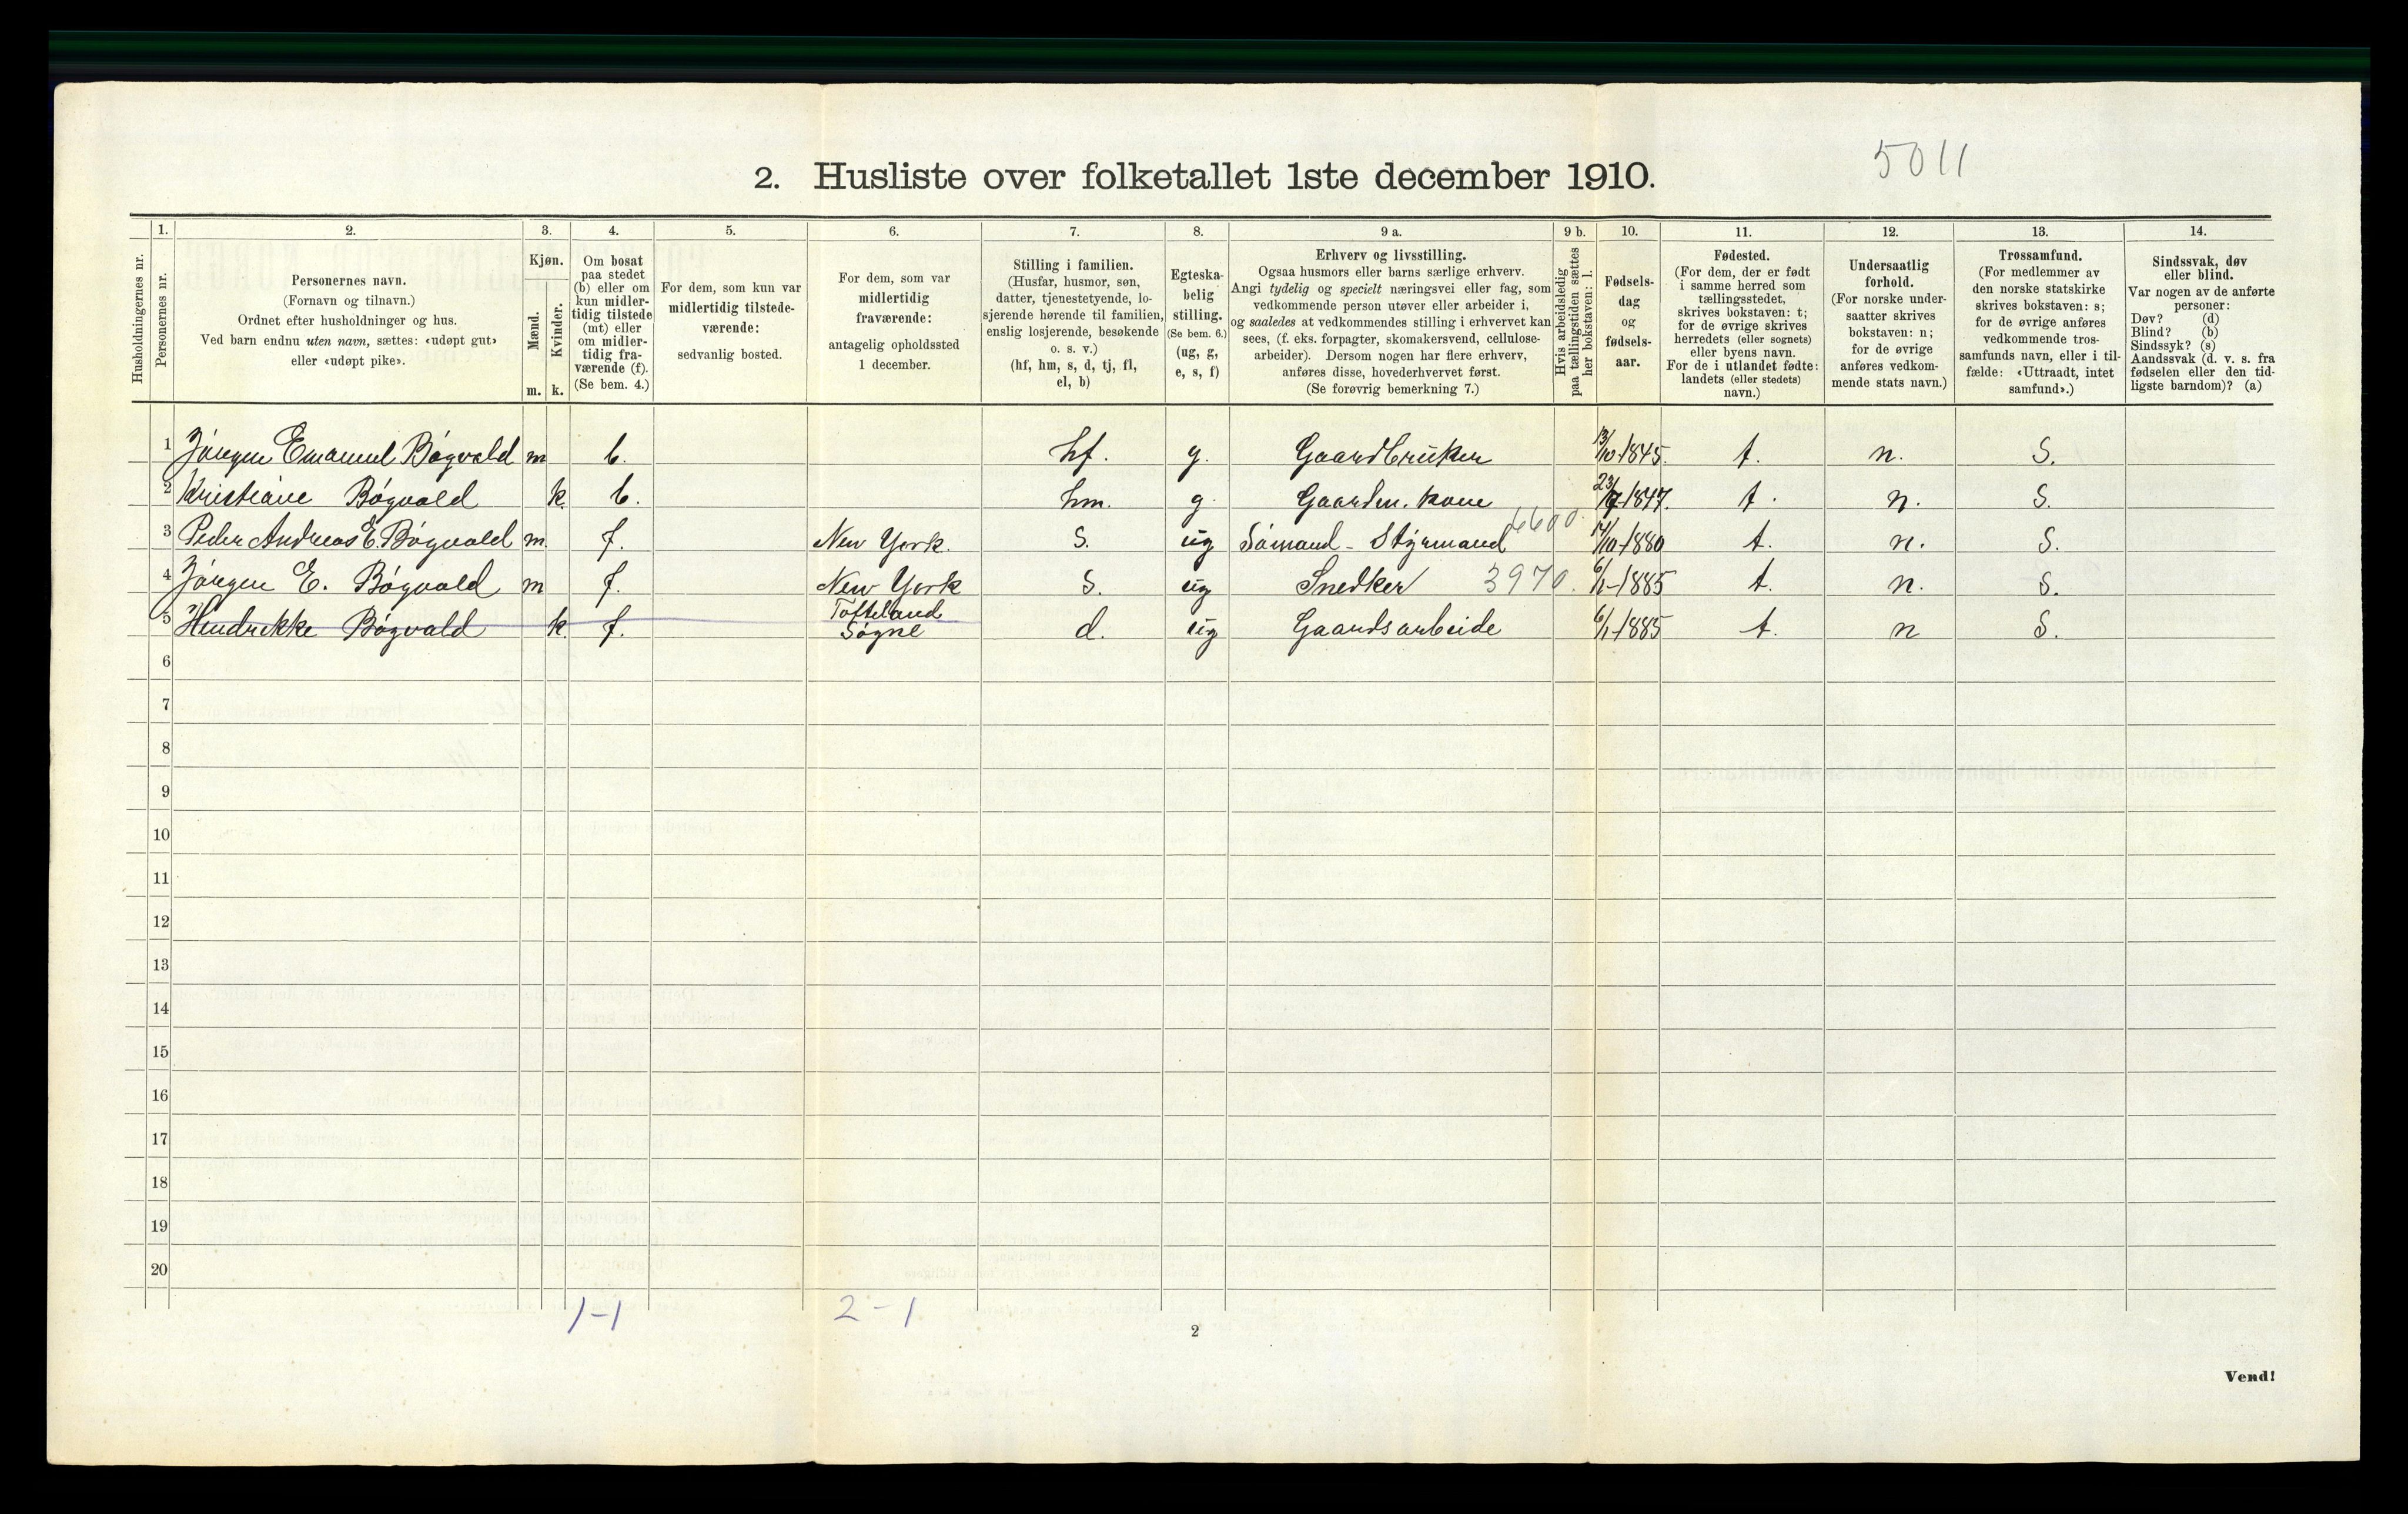 5011
2. Husliste over folketallet 1ste december 1910.
Husholdningernes nr.
1.
Personernes nr.
2.
Personernes navn.
(Fornavn og tilnavn.)
Ordnet efter husholdninger og hus.
Ved barn endnu uten navn, sættes: «udøpt gut»
eller «udøpt pike».
3.
Kjøn.
Mænd.
Kvinder.
m. k.
4.
Om bosat
paa stedet
(b) eller om
kun midler-
tidig tilstede
(mt) eller
om midler-
tidig fra-
værende (f).
(Se bem. 4.)
5.
For dem, som kun var
midlertidig tilstede-
værende:
sedvanlig bosted.
6.
For dem, som var
midlertidig
fraværende:
antagelig opholdssted
1 december.
7.
Stilling i familien.
(Husfar, husmor, søn,
datter, tjenestetyende, lo-
sjerende hørende til familien,
enslig losjerende, besøkende
o. s. v.)
(hf, hm, s, d, tj, fl,
el, b)
8.
Egteska-
belig
stilling.
(Se bem. 6.)
(ug, g,
e, s, f)
9 a.
Erhverv og livsstilling.
Ogsaa husmors eller barns særlige erhverv.
Angi tydelig og specielt næringsvei eller fag, som
vedkommende person utøver eller arbeider i,
og saaledes at vedkommendes stilling i erhvervet kan
sees, (f. eks. forpagter, skomakersvend, cellulose-
arbeider). Dersom nogen har flere erhverv,
anføres disse, hovederhvervet først.
(Se forøvrig bemerkning 7.)
9 b.
Hvis arbeidsledig
paa tællingstiden sættes
her bokstaven: l.
10.
Fødsels-
dag
og
fødsels-
aar.
11.
Fødested.
(For dem, der er født
i samme herred som
tællingsstedet,
skrives bokstaven: t;
for de øvrige skrives
herredets (eller sognets)
eller byens navn.
For de i utlandet fødte:
landets (eller stedets)
navn.)
12.
Undersaatlig
forhold.
(For norske under-
saatter skrives
bokstaven: n;
for de øvrige
anføres vedkom-
mende stats navn.)
13.
Trossamfund.
(For medlemmer av
den norske statskirke
skrives bokstaven: s;
for de øvrige anføres
vedkommende tros-
samfunds navn, eller i til-
fælde: «Uttraadt, intet
samfund».)
14.
Sindssvak, døv
eller blind.
Var nogen av de anførte
personer:
Døv? (d)
Blind? (b)
Sindssyk? (s)
Aandssvak (d. v. s. fra
fødselen eller den tid-
ligste barndom)? (a)
1 Jörgen Emanuel Bögvald m b. hf. g. Gaardbruker 13/10-1845. t. n. S.
2 Kristiane Bögvald k. b. hm. g. Gaardm. kone 23/7-1847. t. n. S.
3 Peder Andreas E. Bögvald m. f. New York. S. ug Sömand - Styrmand 6600. 14/10-1880 t. n. S.
4 Jörgen E. Bögvald m f. New York S. ug Snedker 3970. 6/1-1885 t. n. S.
5 Hendrikke Bögvald k. f. Tofteland
Sögne d. ug Gaardsarbeide 6/1-1885 t. n S.
6
7
8
9
10
11
12
13
14
15
16
17
18
19
20
1-1 2-1
2
Vend!